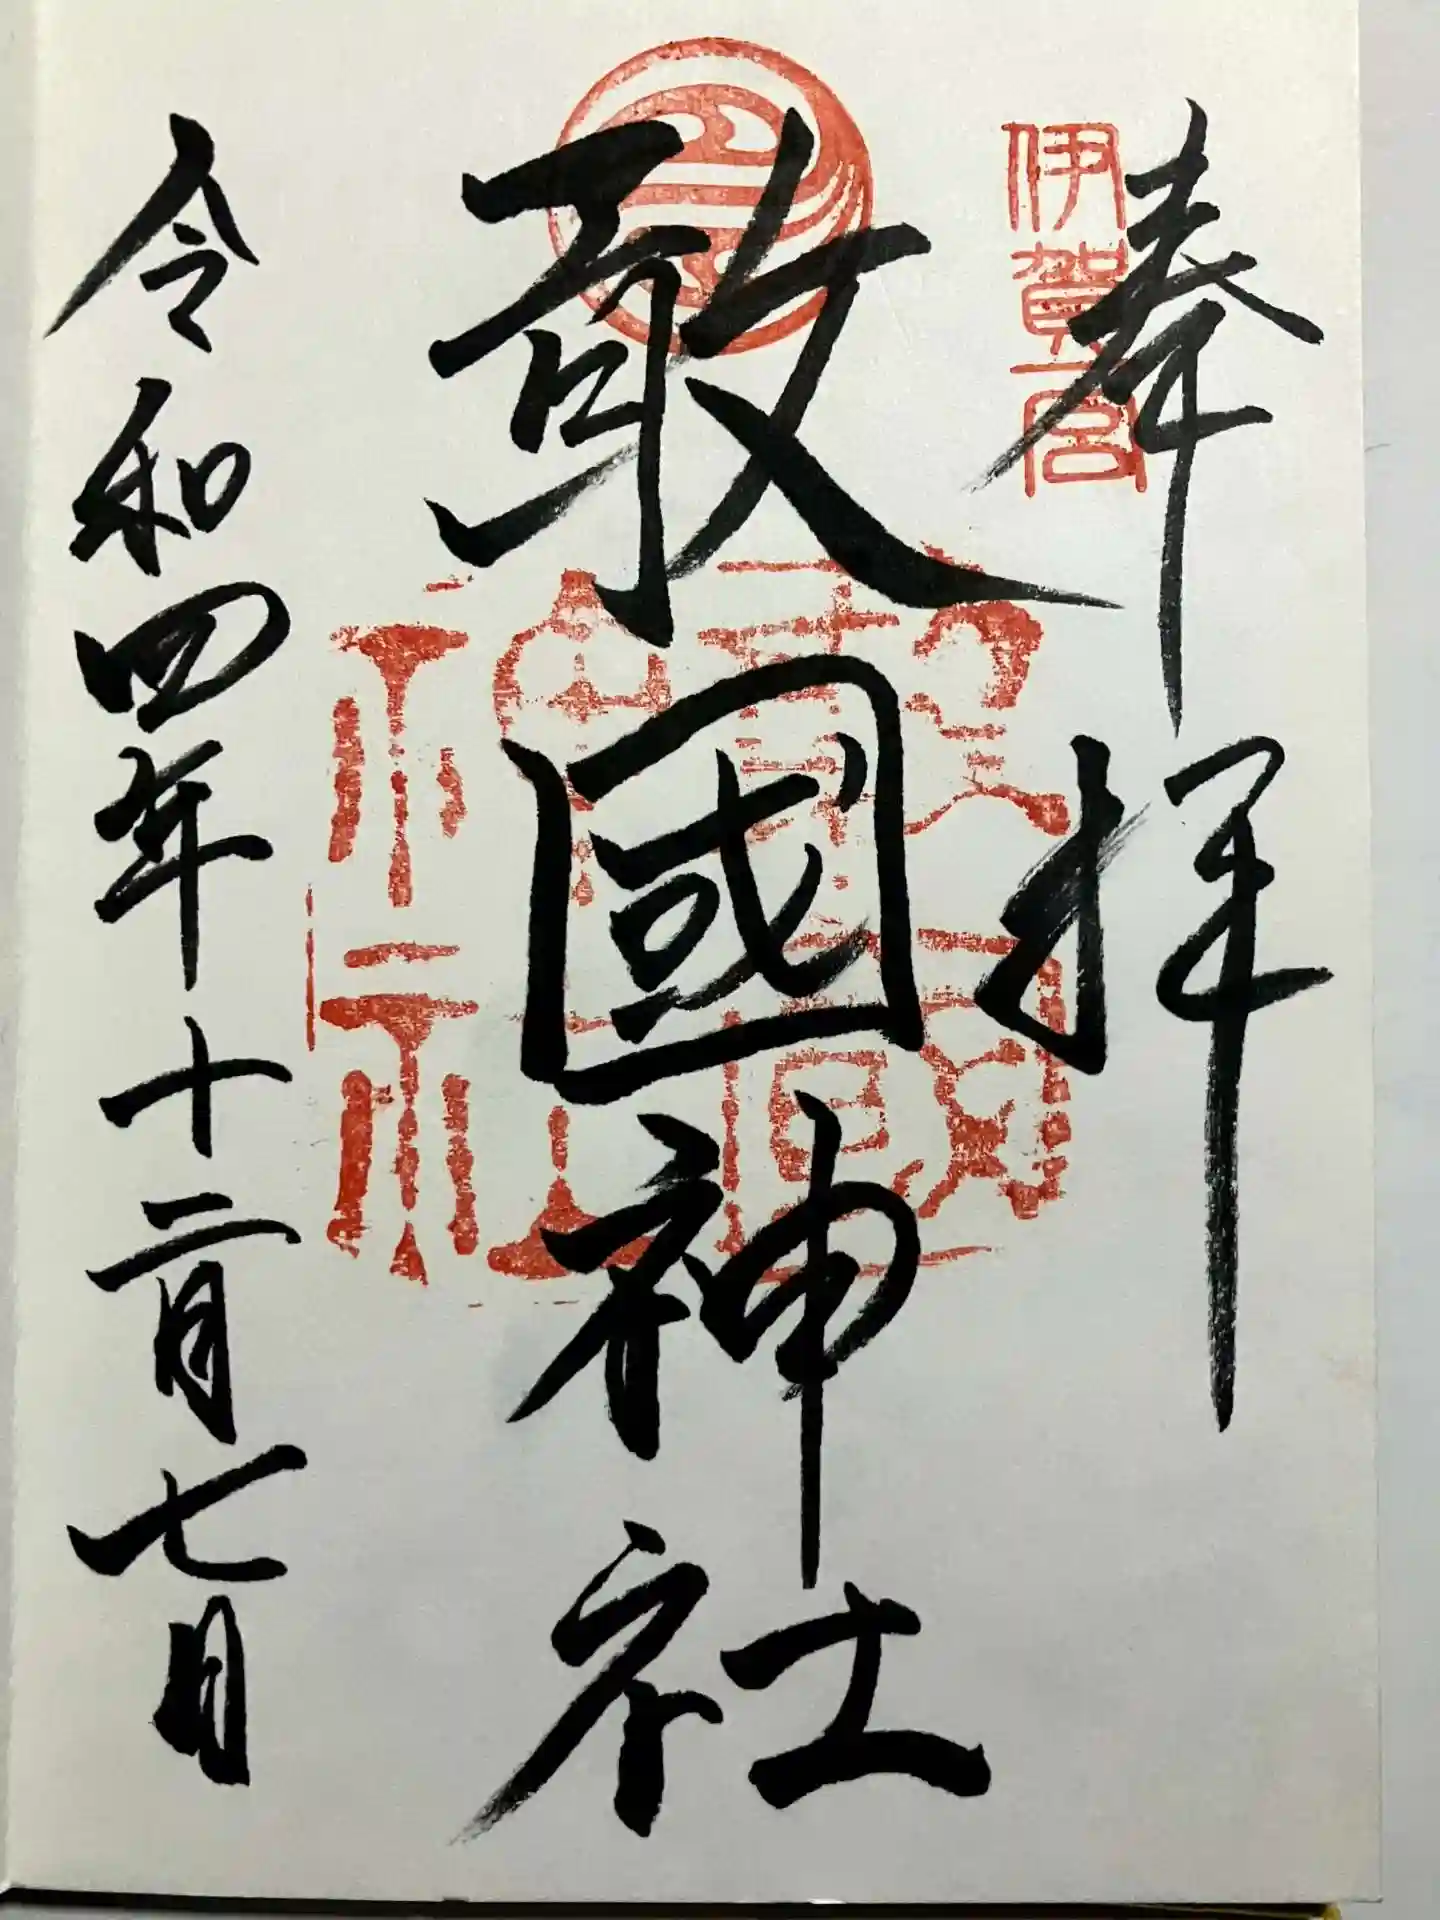 奉拝
伊賀一宮
敢國神社
令和四年十二月七日